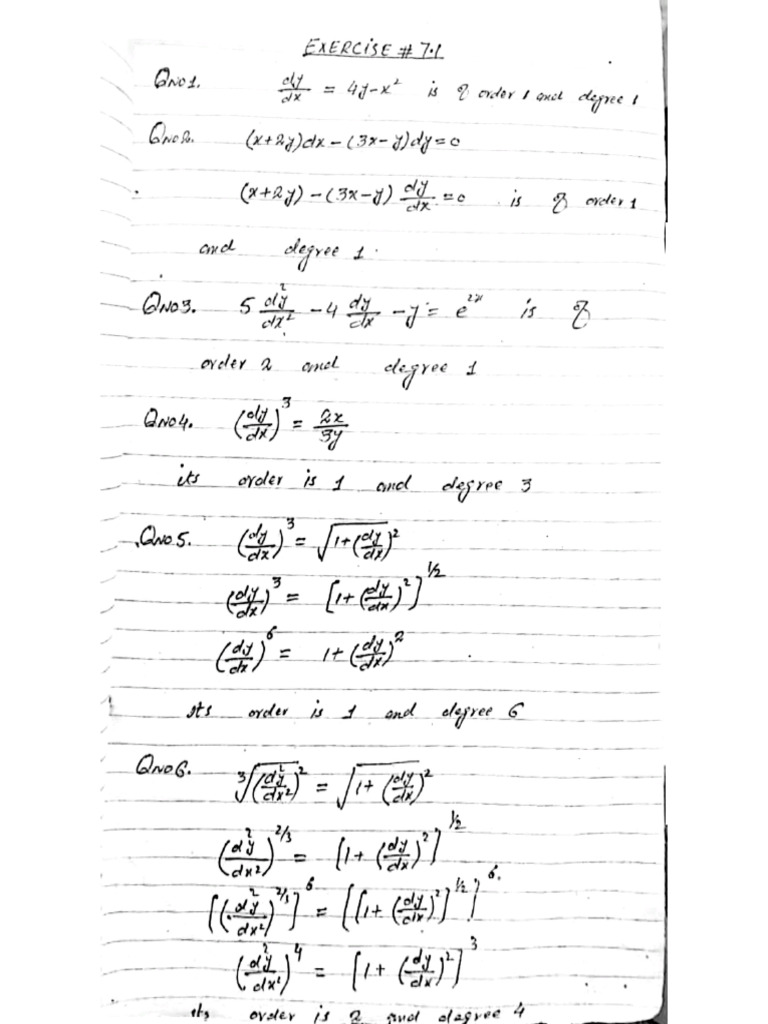 EXERCISE # 7.1
QNO1. dy/dx = 4y-x² is of order 1 and degree 1
QNO2. (x+2y)dx-(3x-y)dy=0
(x+2y)-(3x-y) dy/dx =0 . is of order 1
and degree 1.
QNO3. 5 d²y/dx² -4 dy/dx -y = e²ˣ is of
order 2 and degree 1
QNO4. (dy/dx)³ = 2x/3y
its order is 1 and degree 3
QNO5. (dy/dx)³ = √1+(dy/dx)²
(dy/dx)³ = [1+(dy/dx)²]^1/2
(dy/dx)⁶ = 1+(dy/dx)²
its order is 1 and degree 6
QNO6. ³√(d²y/dx²)² = √1+(dy/dx)²
(d²y/dx²)^2/3 = [1+(dy/dx)²]^1/2
[(d²y/dx²)^2/3]⁶ = [[1+(dy/dx)²]^1/2]⁶.
(d²y/dx²)⁴ = [1+(dy/dx)²]³
its order is 2 and degree 4